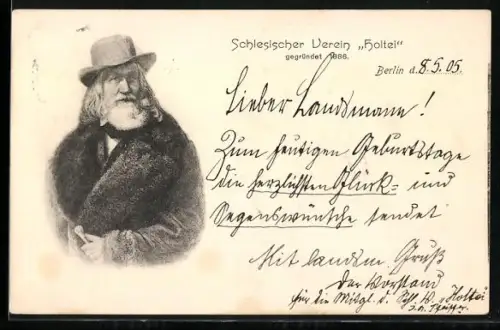 Schlesischer Verein „Holtei“
gegründet 1888.
Berlin d. 8.5.05.
Lieber Landsmann!
Zum heutigen Geburtstage
die herzlichsten Glück- und
Segenswünsche sendet
Mit landsm. Gruß
Der Vorstand
für die Mitgl. d. Schl. V. „Holtei